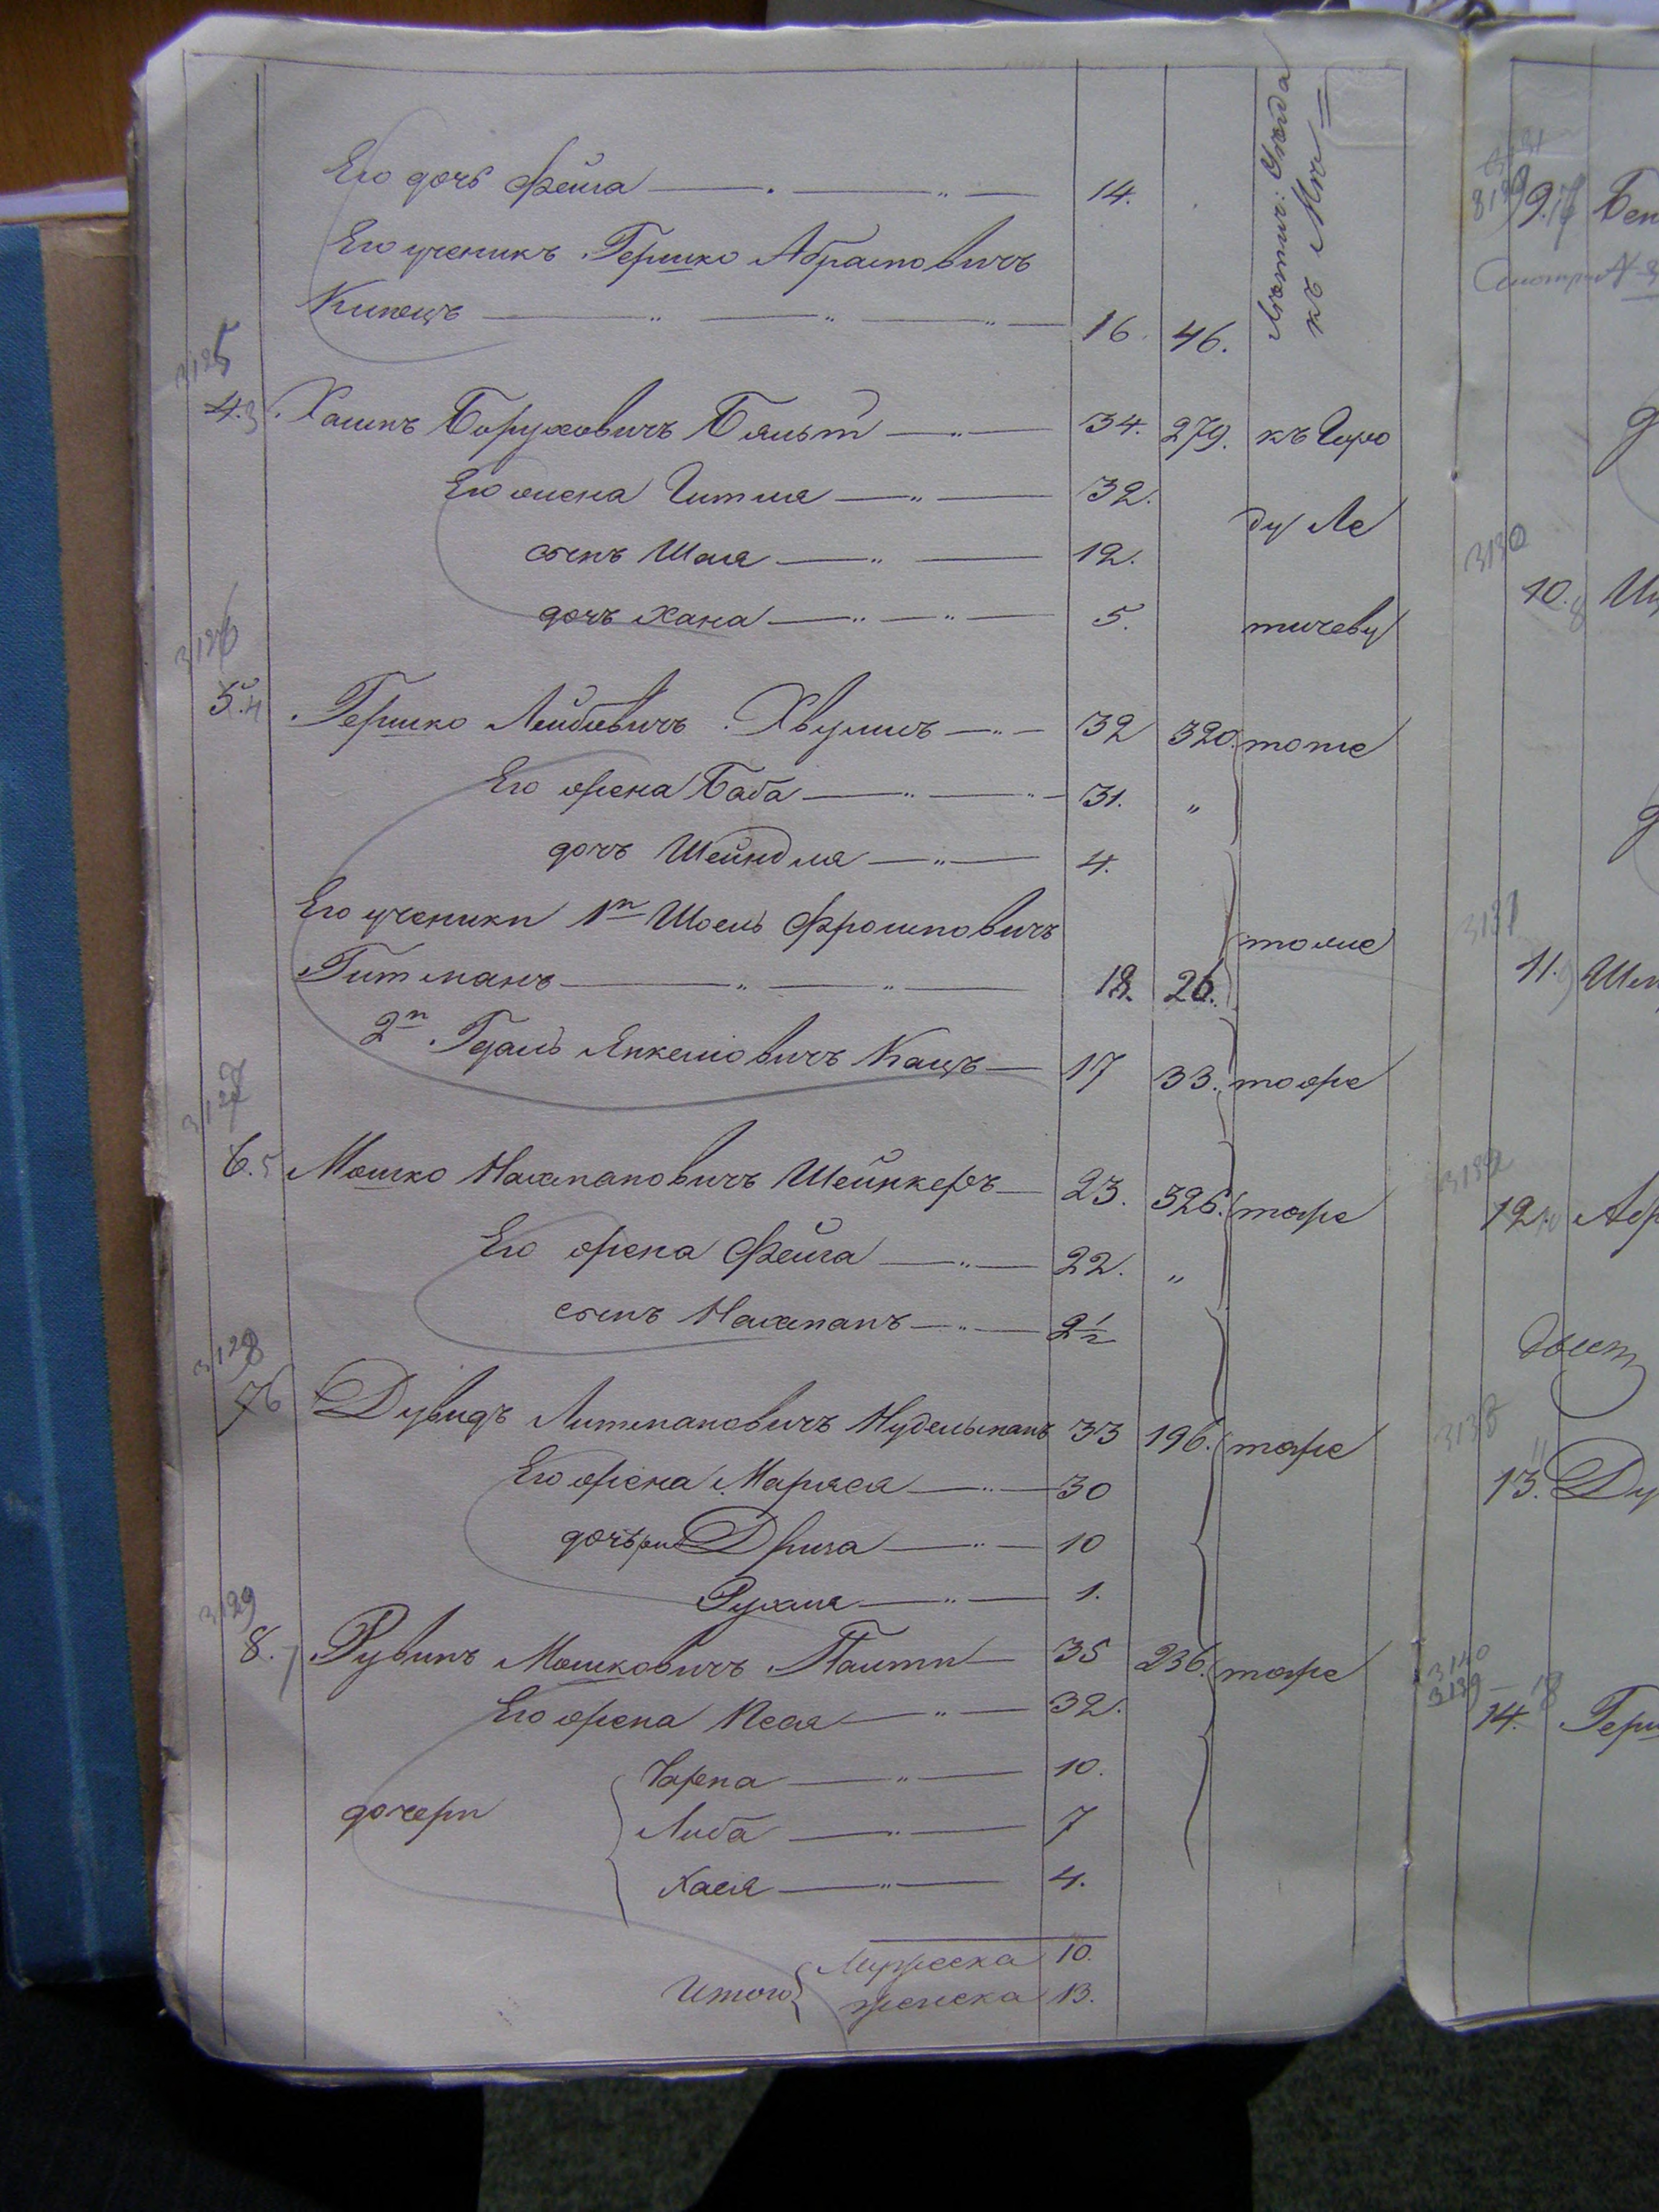 Его дочь Фейга 14.
Его ученикъ Гершко Абрамовичъ
Кипецъ 16. 46.
Летич: Уѣзда
къ
3125
4. 3. Хаимъ Боруховичъ 34. 279. къ Горо
Его жена Гитля 32.
ду Ле
сынъ Шая 12.
дочь Хана 5. тичеву
3126
5. 4. Гершко Лейбовичъ 32 320. тоже
Его жена Баба 31. „
дочь Шейндля 4.
Его ученики 1й Шоель Фроимовичъ
тоже
Гитманъ 18. 26.
2й Гдаль Янкелиовичъ Кацъ 17 33. тоже
3127
6. 5 Мошко Нахмановичъ Шейнкеръ 23. 326. тоже
Его жена Фейга 22. „
сынъ Нахманъ 2½
3128
7 6 Дувидъ Литмановичъ Нудельманъ 33 196. тоже
Его жена Маряся 30
дочери 10
Рухля 1.
3129
8. 7 Рувинъ Мошковичъ 35 236. тоже
Его жена Песя 32.
Чарна 10.
дочери Либа 7
Хася 4.
Итого Мужеска 10.
женска 13.
8130
9. 17 Бен
Смотри №
3130
10. 8
3131
11. 9 Шм
3132
12. 10 Абр
13. 11 Ду
3140
3139
14. Герш